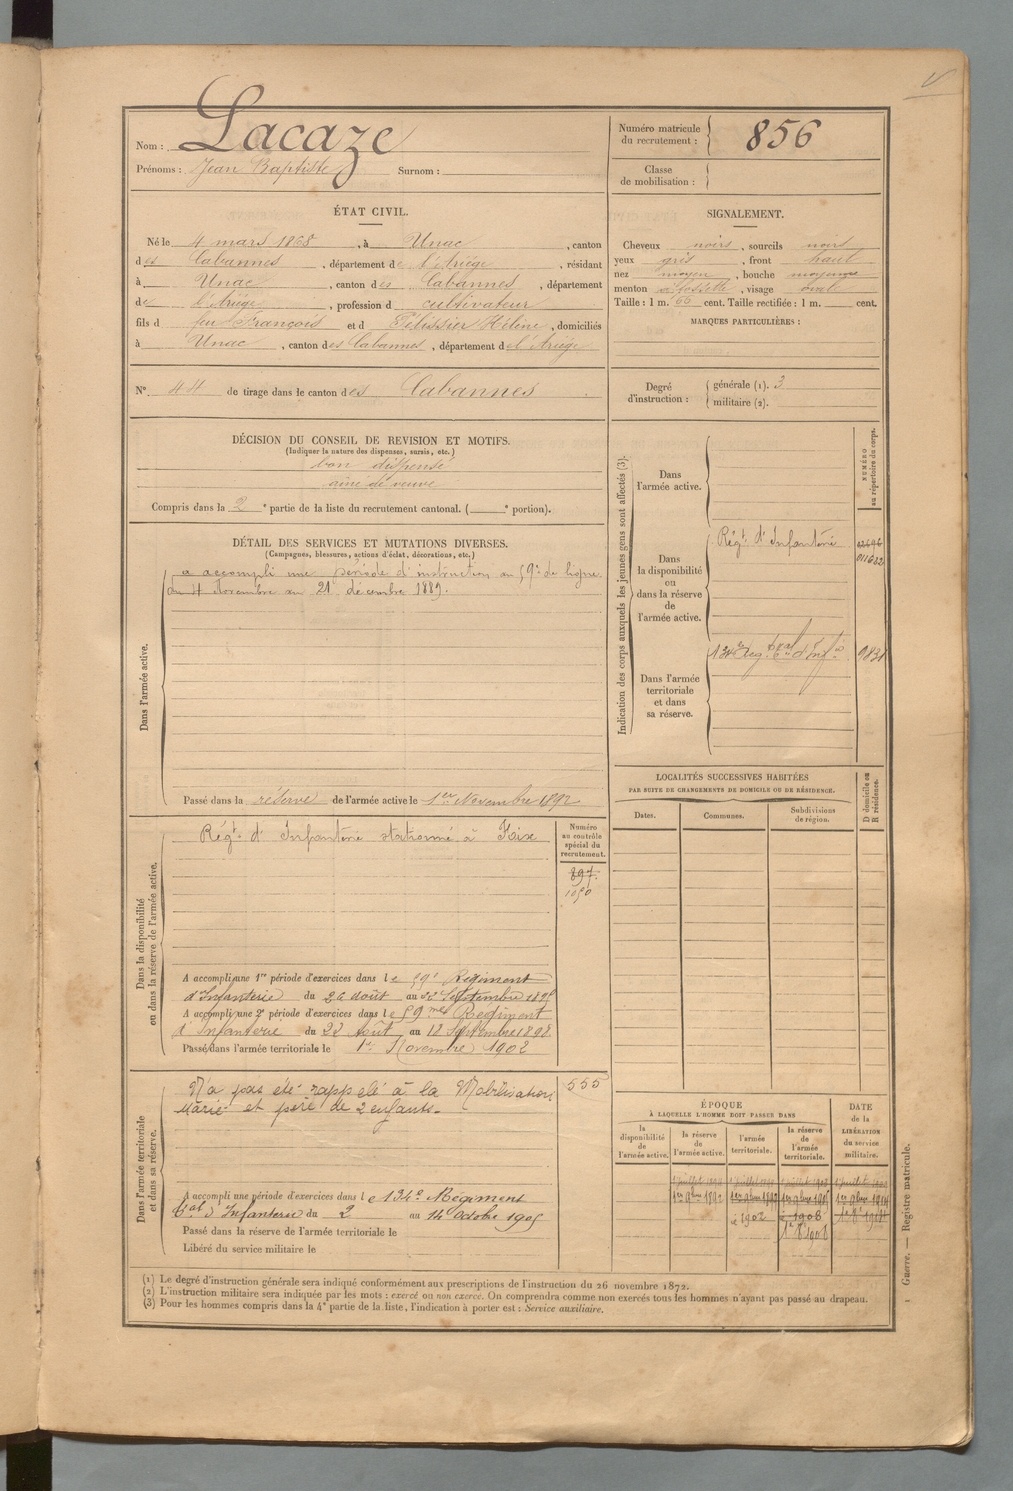 Nom : Lacaze
Prénoms : Jean Baptiste Surnom :
Numéro matricule du recrutement : 856
Classe de mobilisation :
ÉTAT CIVIL.
Né le 4 mars 1868, à Unac, canton
des Cabannes, département de l'Ariège, résidant
à Unac, canton des Cabannes, département
de l'Ariège, profession d cultivateur
fils d feu François et d Pélissier Hélène, domiciliés
à Unac, canton des Cabannes, département de l'Ariège
N° 44 de tirage dans le canton des Cabannes
SIGNALEMENT.
Cheveux noirs, sourcils noirs
yeux gris, front haut
nez moyen, bouche moyenne
menton à fossette, visage ovale
Taille : 1 m. 66 cent. Taille rectifiée : 1 m. cent.
MARQUES PARTICULIÈRES :
Degré d'instruction : générale (1). 3
militaire (2).
DÉCISION DU CONSEIL DE REVISION ET MOTIFS.
(Indiquer la nature des dispenses, sursis, etc.)
bon dispensé
ainé de veuve
Compris dans la 2e partie de la liste du recrutement cantonal. ( e portion).
DÉTAIL DES SERVICES ET MUTATIONS DIVERSES.
(Campagnes, blessures, actions d'éclat, décorations, etc.)
Dans l'armée active.
a accompli une période d'instruction au 59e de ligne
Novembre au 21 décembre 1889.
Passé dans la réserve de l'armée active le 1er Novembre 1892
Indication des corps auxquels les jeunes gens sont affectés (3).
NUMÉRO au répertoire du corps.
Dans l'armée active.
Dans la disponibilité ou dans la réserve de l'armée active.
Régt d'Infanterie
011632
Dans l'armée territoriale et dans sa réserve.
134e Rég. tal d'Inf.ie
LOCALITÉS SUCCESSIVES HABITÉES
PAR SUITE DE CHANGEMENTS DE DOMICILE OU DE RÉSIDENCE.
Dates. Communes. Subdivisions de région.
D domicile ou R résidence.
Dans la disponibilité ou dans la réserve de l'armée active.
Régt d'Infanterie stationné à Foix
Numéro au contrôle spécial du recrutement.
897
1050
A accompli une 1re période d'exercices dans le 59e Régiment
d'Infanterie du 26 août au 22 Septembre
A accompli une 2e période d'exercices dans le 59me Régiment
d'Infanterie du 22 Août au 18 Septembre 1898
Passé dans l'armée territoriale le 1er Novembre 1902
Dans l'armée territoriale et dans sa réserve.
N'a pas été rappelé à la Mobilisation
Marié et père de 2 enfants.
555
A accompli une période d'exercices dans le 134e Régiment
tal d'Infanterie du 2 au 14 Octobre 1905
Passé dans la réserve de l'armée territoriale le
Libéré du service militaire le
ÉPOQUE
À LAQUELLE L'HOMME DOIT PASSER DANS
la disponibilité de l'armée active.
la réserve de l'armée active.
l'armée territoriale.
la réserve de l'armée territoriale.
DATE de la LIBÉRATION du service militaire.
1er 9bre 1892
1902
1908
(1) Le degré d'instruction générale sera indiqué conformément aux prescriptions de l'instruction du 26 novembre 1872.
(2) L'instruction militaire sera indiquée par les mots : exercé ou non exercé. On comprendra comme non exercés tous les hommes n'ayant pas passé au drapeau.
(3) Pour les hommes compris dans la 4e partie de la liste, l'indication à porter est : Service auxiliaire.
Guerre. — Registre matricule.